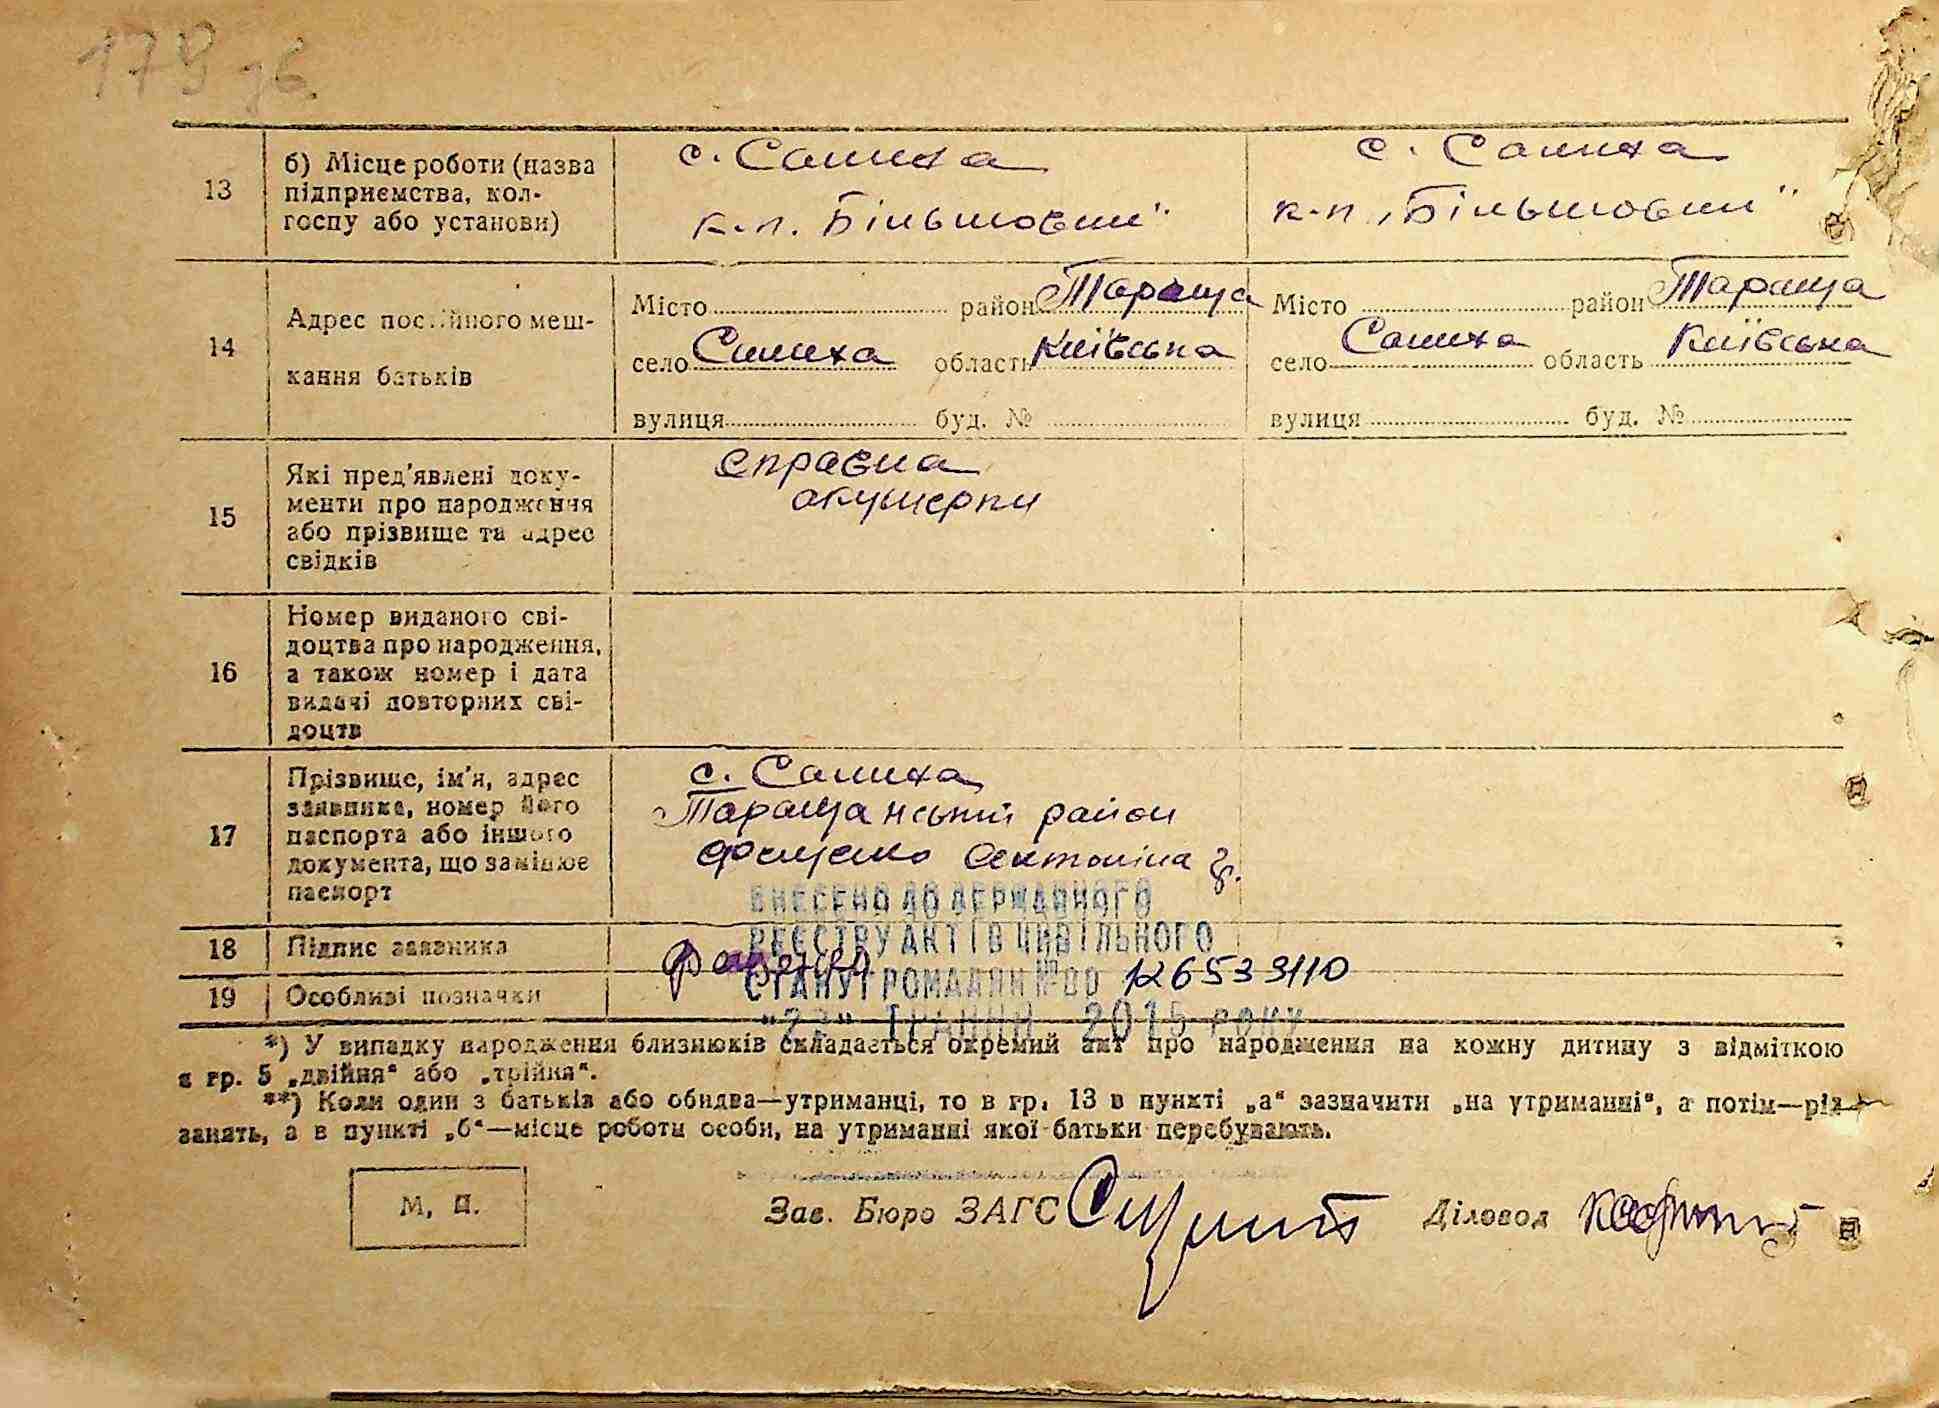 179 зб
13
б) Місце роботи (назва
підприємства, кол-
госпу або установи)
с. Салиха
к.п. Більшовик"
с. Салиха
к-п „Більшовик"
14
Адрес постійного меш-
кання батьків
Місто район Тараща
село Салиха область Київська
вулиця буд. №
Місто район Тараща
село Салиха область Київська
вулиця буд. №
15
Які пред'явлені доку-
менти про народження
або прізвище та адрес
свідків
справка
акушерки
16
Номер виданого сві-
доцтва про народження,
а також номер і дата
видачі повторних сві-
доцтв
17
Прізвище, ім'я, адрес
заявника, номер його
паспорта або іншого
документа, що замінює
паспорт
с. Салиха
Таращанський район
Фещенко Антоніна
18
Підпис заявника
19
Особливі позначки
ВНЕСЕНО ДО ДЕРЖАВНОГО
РЕЄСТРУ АКТІВ ЦИВІЛЬНОГО
СТАНУ ГРОМАДЯН №00 126533110
"22" ТРАВНЯ 2015 РОКУ
*) У випадку народження близнюків складається окремий акт про народження на кожну дитину з відміткою
в гр. 5 „двійня“ або „трійня“.
**) Коли один з батьків або обидва—утриманці, то в гр. 13 в пункті „а“ зазначити „на утриманні“, а потім—рід
занять, а в пункті „б“—місце роботи особи, на утриманні якої батьки перебувають.
М. П.
Зав. Бюро ЗАГС
Діловод